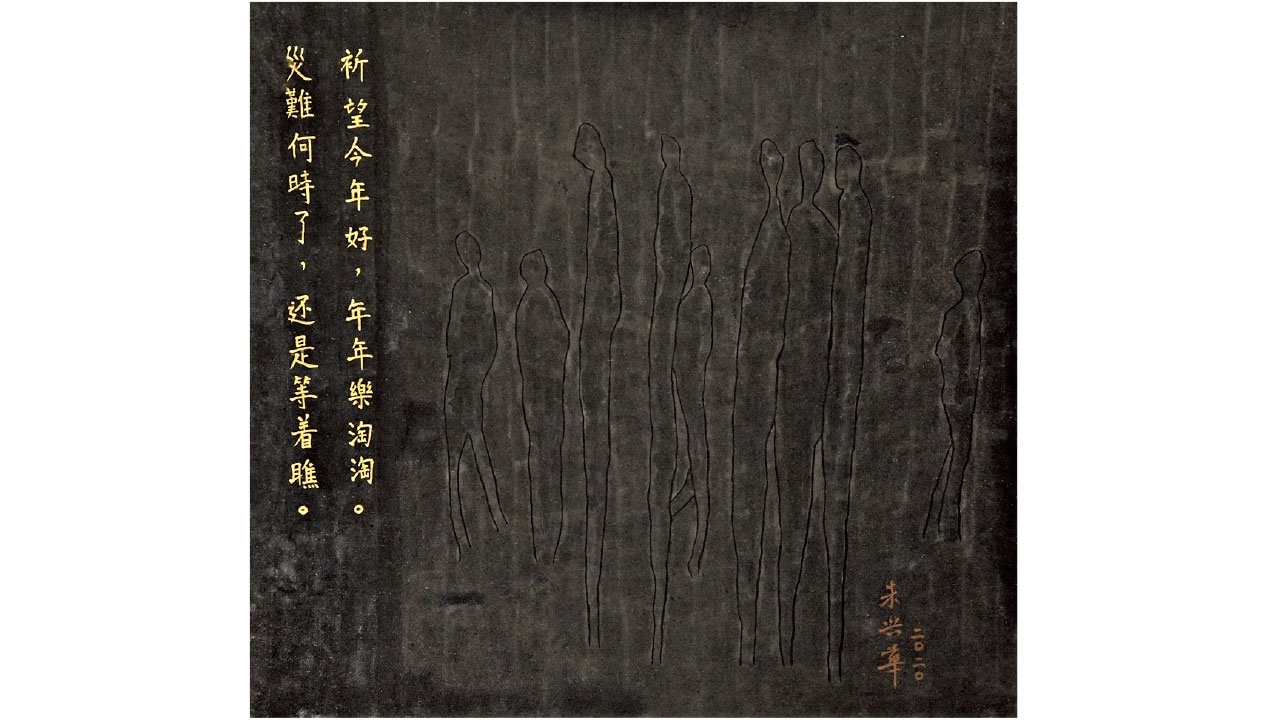 祈望今年好，年年樂淘淘。
災難何時了，还是等着瞧。
朱兴華
二〇二〇